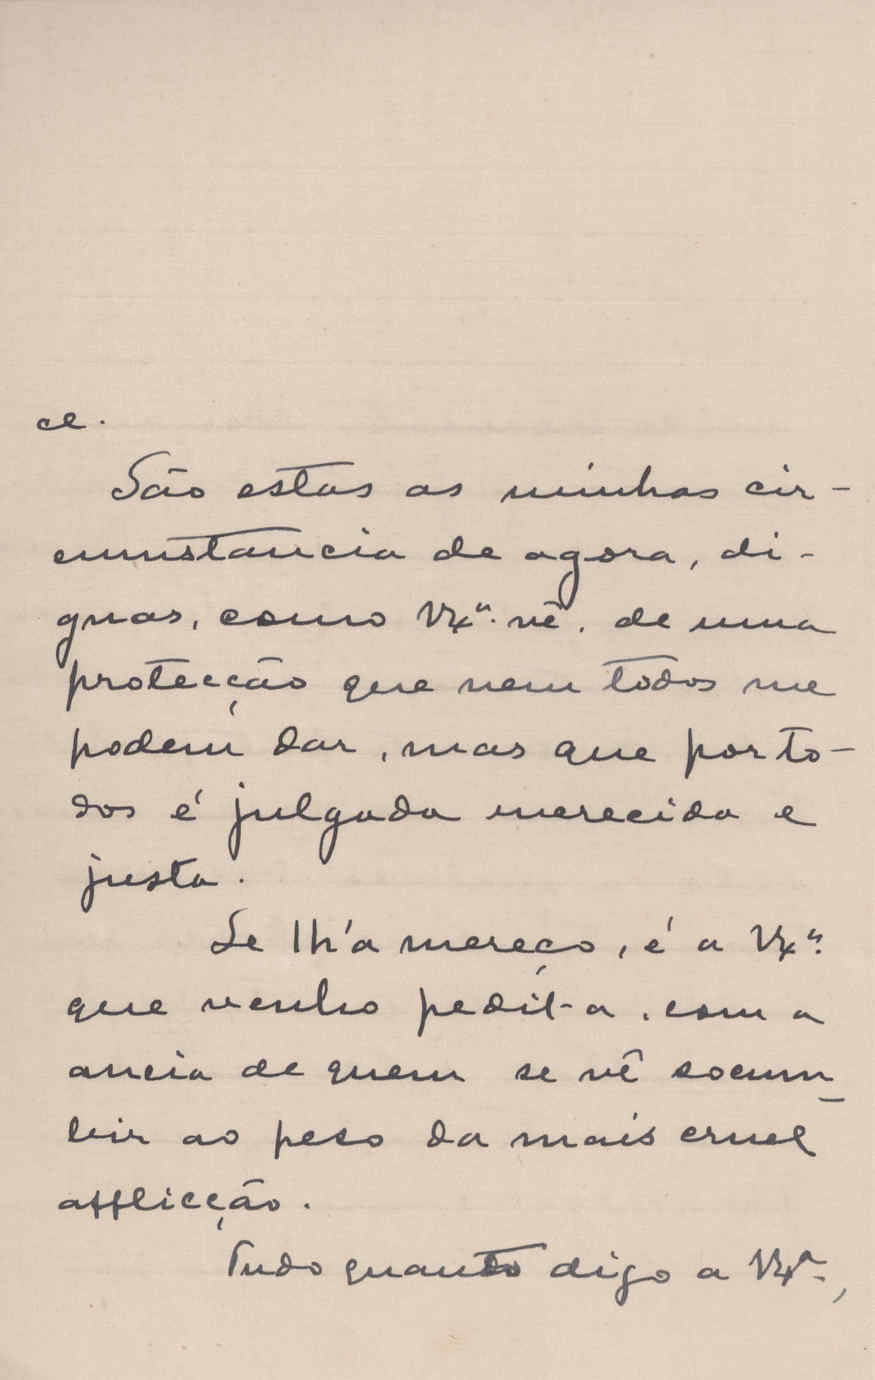 ce.
São estas as minhas cir-
cumstancia de agora, di-
gnas, como V.Exª. vê, de uma
protecção que nem todos me
podem dar, mas que por to-
dos é julgada merecida e
justa.
Se lh'a mereço, é a V.Exª.
que venho pedil-a, com a
ancia de quem se vê socum-
bir ao peso da mais cruel
afflicção.
Tudo quanto digo a V.Exª.,